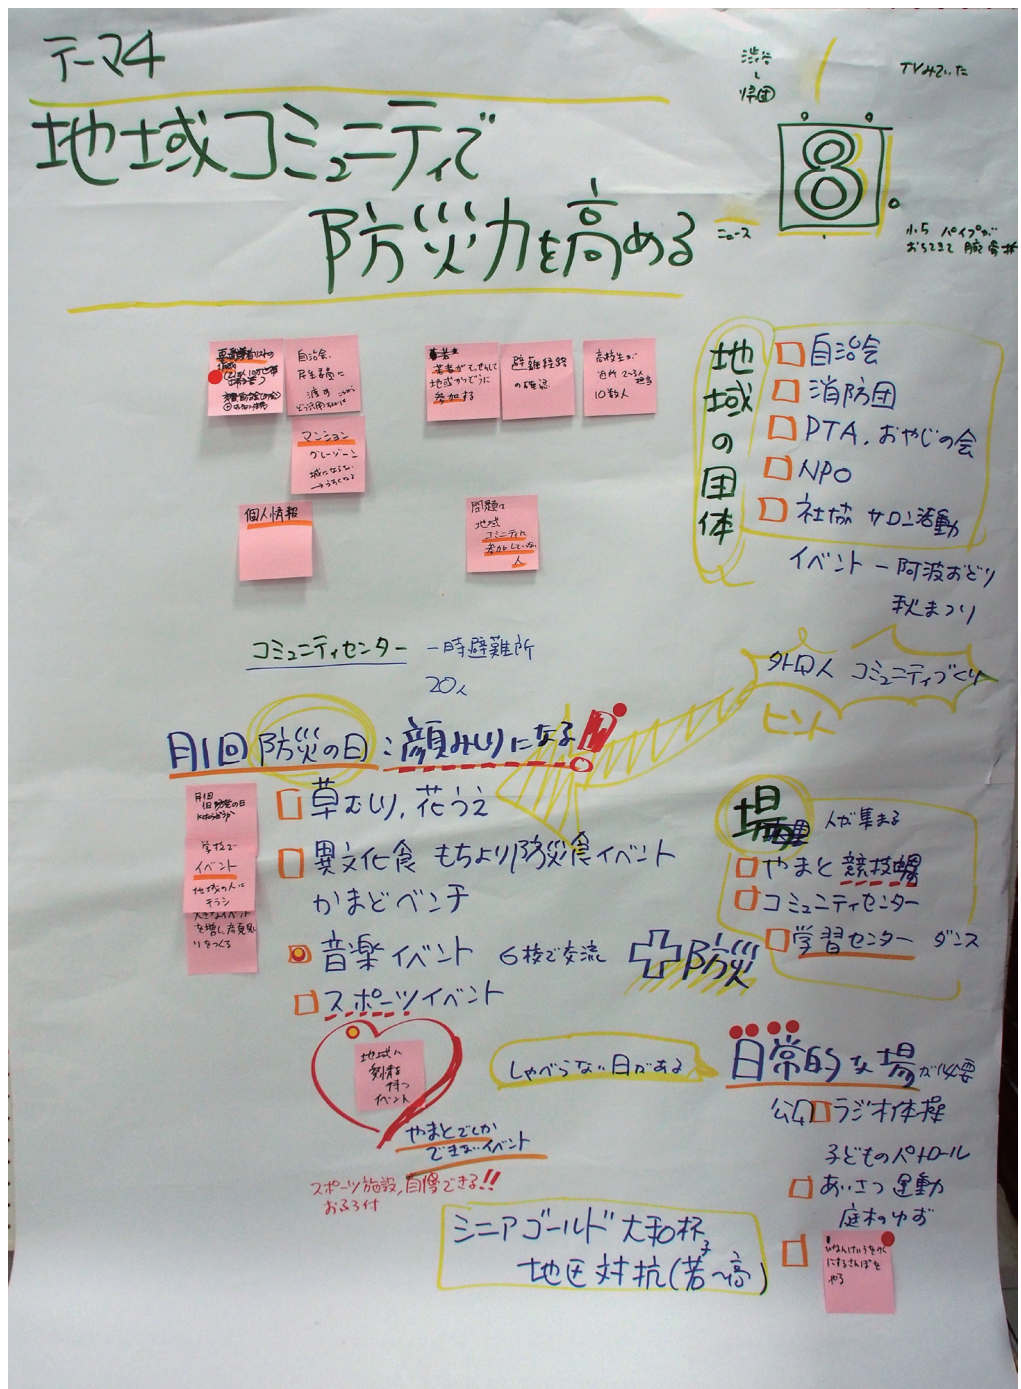 テーマ4
地域コミュニティで
防災力を高める
渋谷
帰国
TVみていた
8
ニュース
小5 パイプが
おちてきて 腕骨折
自治会、
民生委員に
渡す
個人情報
マンション
グレーゾーン
若者が
地域かつどうに
参加する
避難経路
の確認
高校生が
近所 2~3人 担当
10数人
問題は
地域
コミニティに
参加していない
人
地域の団体
自治会
消防団
PTA、おやじの会
NPO
社協 サロン活動
イベント ー 阿波おどり
秋まつり
コミュニティセンター 一時避難所
20人
外国人 コミュニティづくり
ヒント
月1回 防災の日:顔みしりになる!
月1回
学校で
イベント
地域の人に
チラシ
大きなイベント
を増し、顔見し
りをつくる
草むしり、花うえ
異文化食 もちより防災食イベント
かまどベンチ
音楽イベント 6校で交流
スポーツイベント
+防災
場 人が集まる
やまと競技場
コミュニティセンター
学習センター ダンス
地域に
興味を
持つ
イベント
やまとでしか
できないイベント
スポーツ施設、自慢できる!!
おふろ付
しゃべらない日がある
日常的な場が必要
公園 ラジオ体操
子どものパトロール
あいさつ運動
庭木のゆず
ひなんけいろをかく
にするさんぽを
やる
シニアゴールド大和杯
地区対抗(若~高)
子